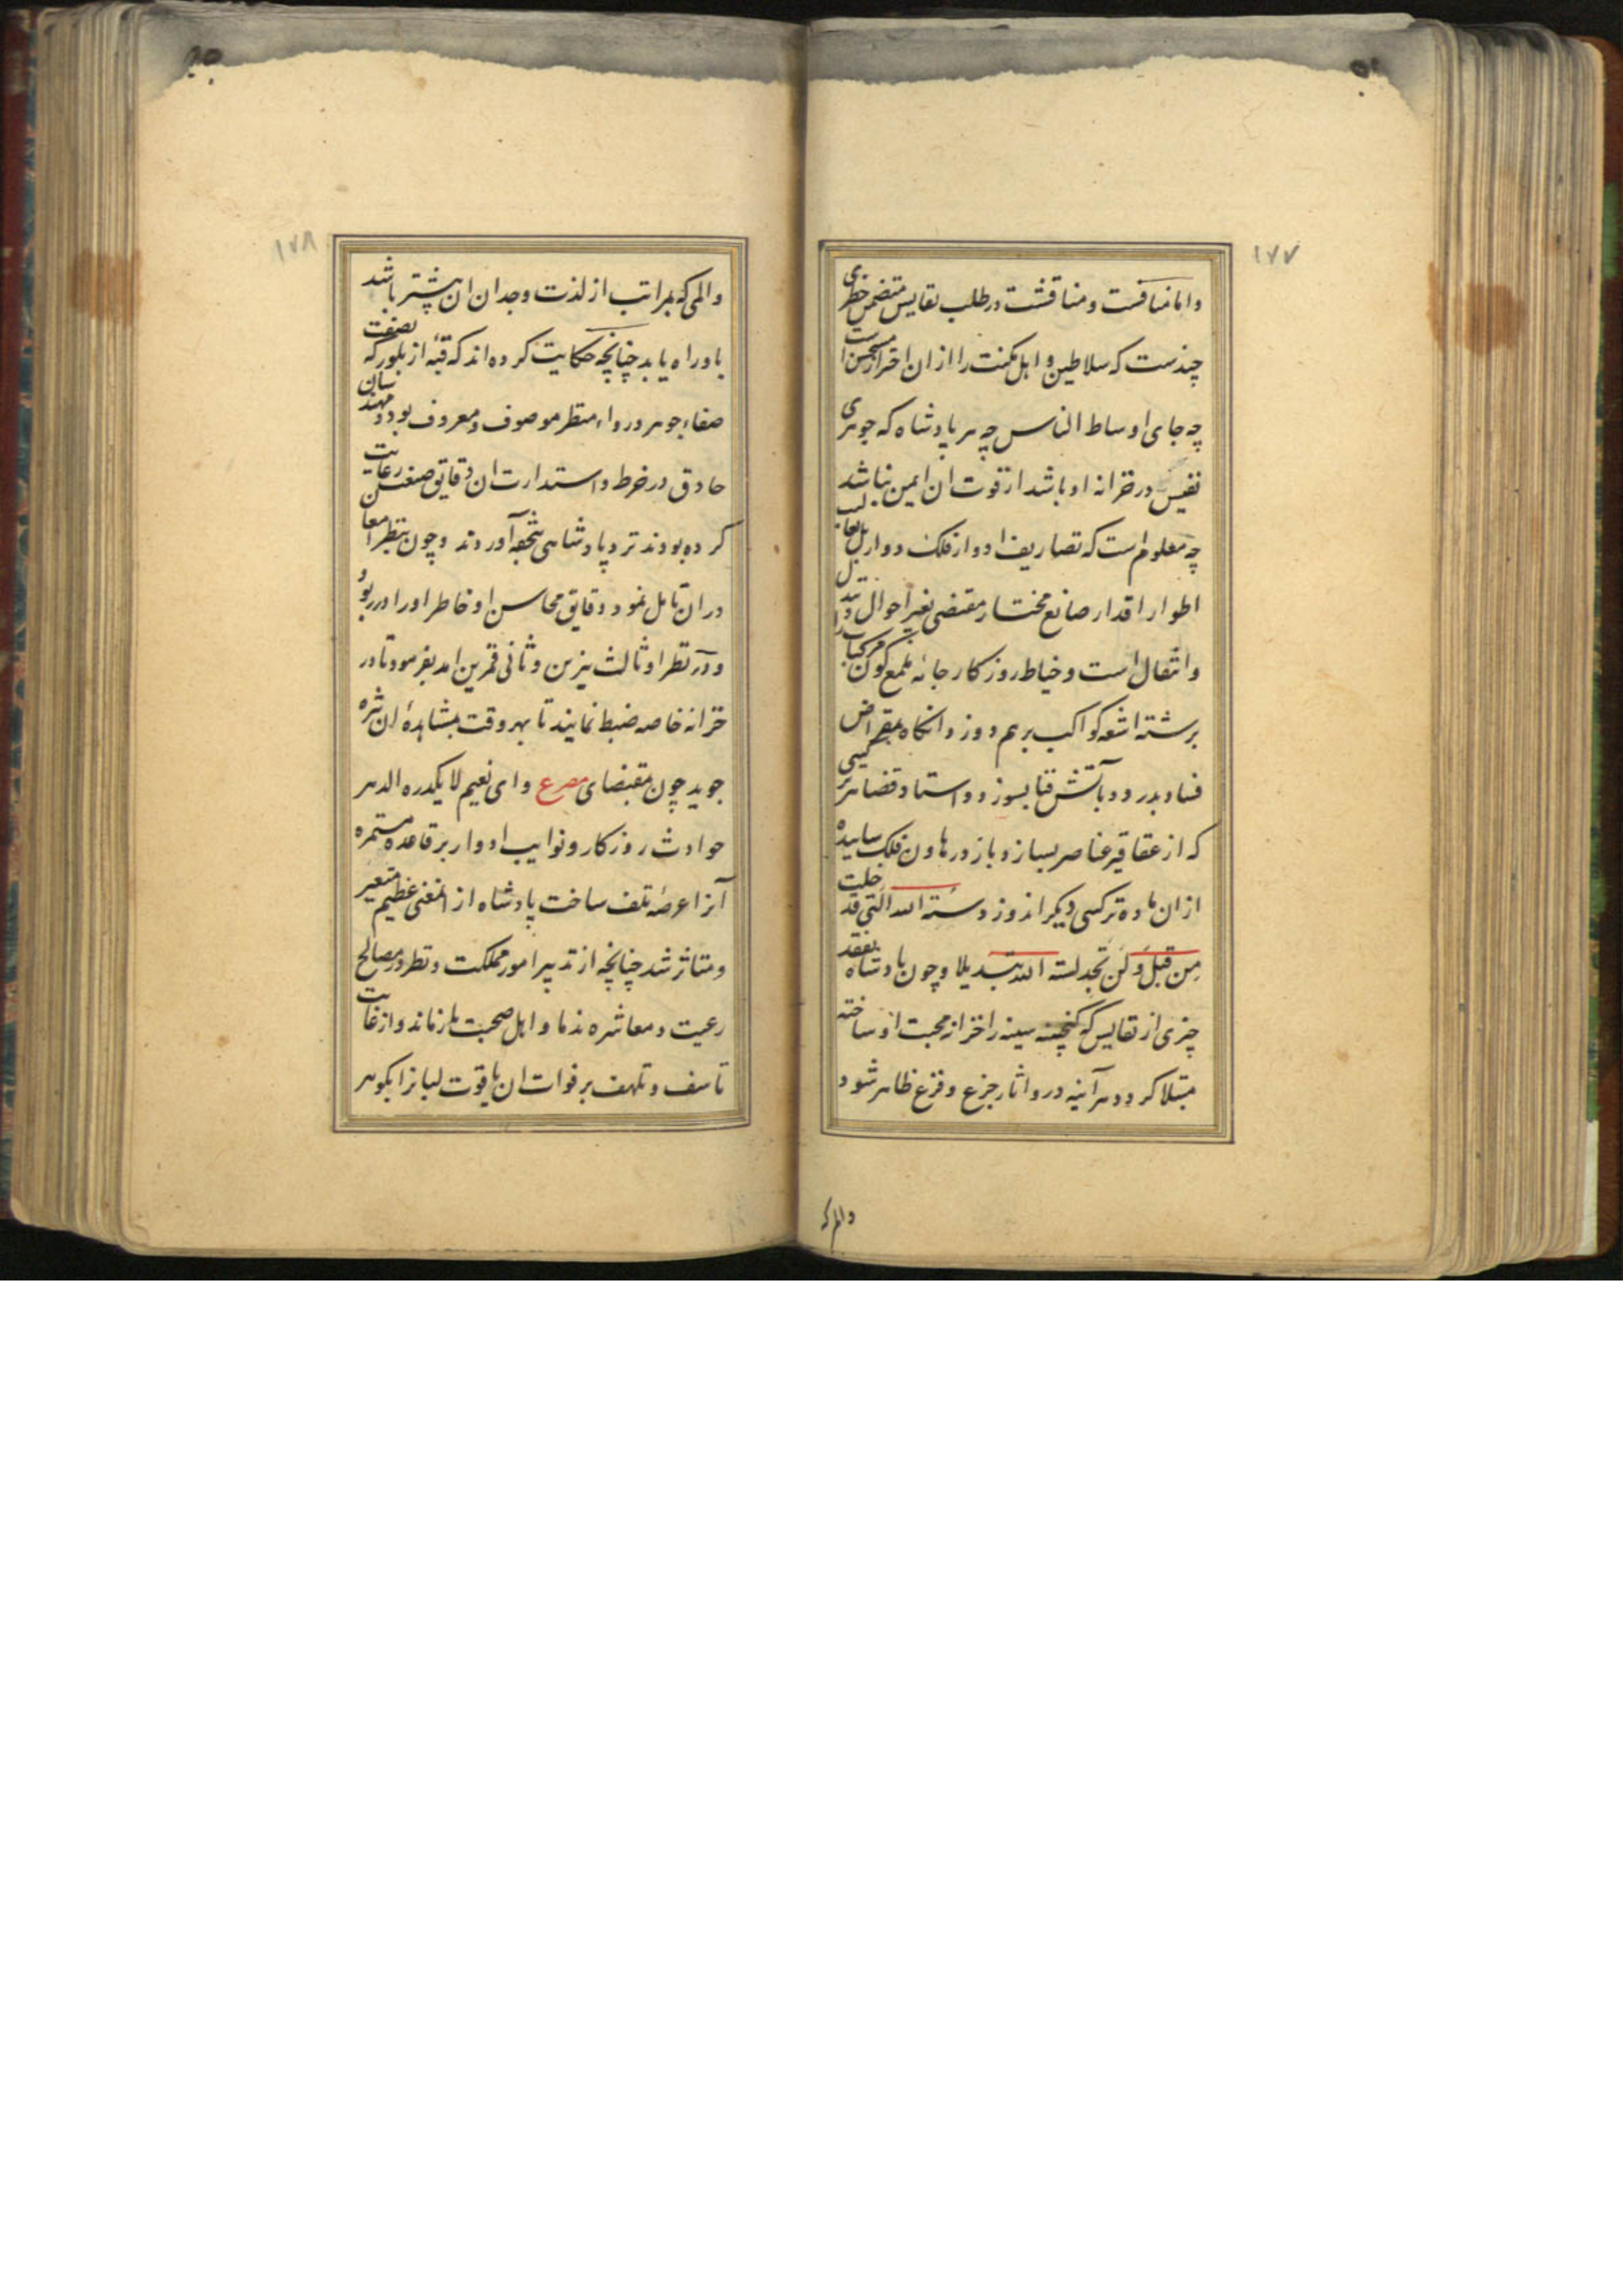 ۱۷۷
واما منافست ومناقشت در طلب نفایس متضمن خطری
چندست که سلاطین و اهل مکنت را از ان احتراز مستحسن است
چه جای اوساط الناس چه هر پادشاه که جوهری
نفیس در خزانه او باشد از فوت ان ایمن نباشد
چه معلوم است که تصاریف ادوار فلک دوار بل لعب
اطوار اقدار صانع مختار مقتضی تغیر احوال و تبدل
وانتقال است و خیاط روزکار جامه ملمع کون مرکبات را
برشته اشعه کواکب برهم دوزد وانکاه بمقراض
فساد بدرد و بآتش فنا بسوزد و استاد قضا هر ترکیبی
که از عقاقیر عناصر بسازد باز در هاون فلک ساییده
از ان ماده ترکیبی دیکر اندوزد سنة الله التی قد خلت
من قبل ولن تجد لسنة الله تبدیلا و چون پادشاه بفقد
چیزی از نفایس که کنجینه سینه را خزانه محبت او ساخته
مبتلا کردد هر آینه درو اثار جزع و فزع ظاهر شود
والم که
۱۷۸
والمی که بمراتب از لذت وجدان ان بیشتر باشد
باو راه یابد چنانچه حکایت کرده اند که قبه از بلور که بصفت
صفاء جوهر و رواء منظر موصوف و معروف بود و مهندسان
حاذق در خرط و استدارت ان دقایق صنعت رعایت
کرده بودند نزد پادشاهی بتحفه آوردند و چون بنظر امعان
در ان تامل نمود دقایق محاسن او خاطر او را در ربود
و در نظر او ثالث نیرین و ثانی قمرین امد بفرمود تا در
خزانه خاصه ضبط نمایند تا بهر وقت بمشاهدهٔ ان نزه
جوید چون بمقتضای مصرع وای نعیم لا یکدره الدهر
حوادث روزکار و نوایب ادوار بر قاعده مستمره
آنرا عرضهٔ تلف ساخت پادشاه از المعنی عظیم متغیر
ومتاثر شد چنانچه از تدبیر امور مملکت و نظر در مصالح
رعیت و معاشره ندما و اهل صحبت باز ماند و از غایت
تاسف و تلهف بر فوات ان یاقوت لبانرا بکوهر